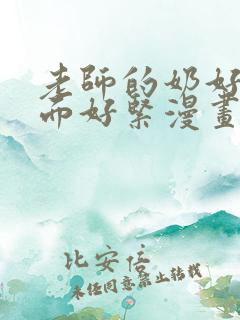 老師的奶好
而好緊漫畫
比安信
未经同意禁止转载